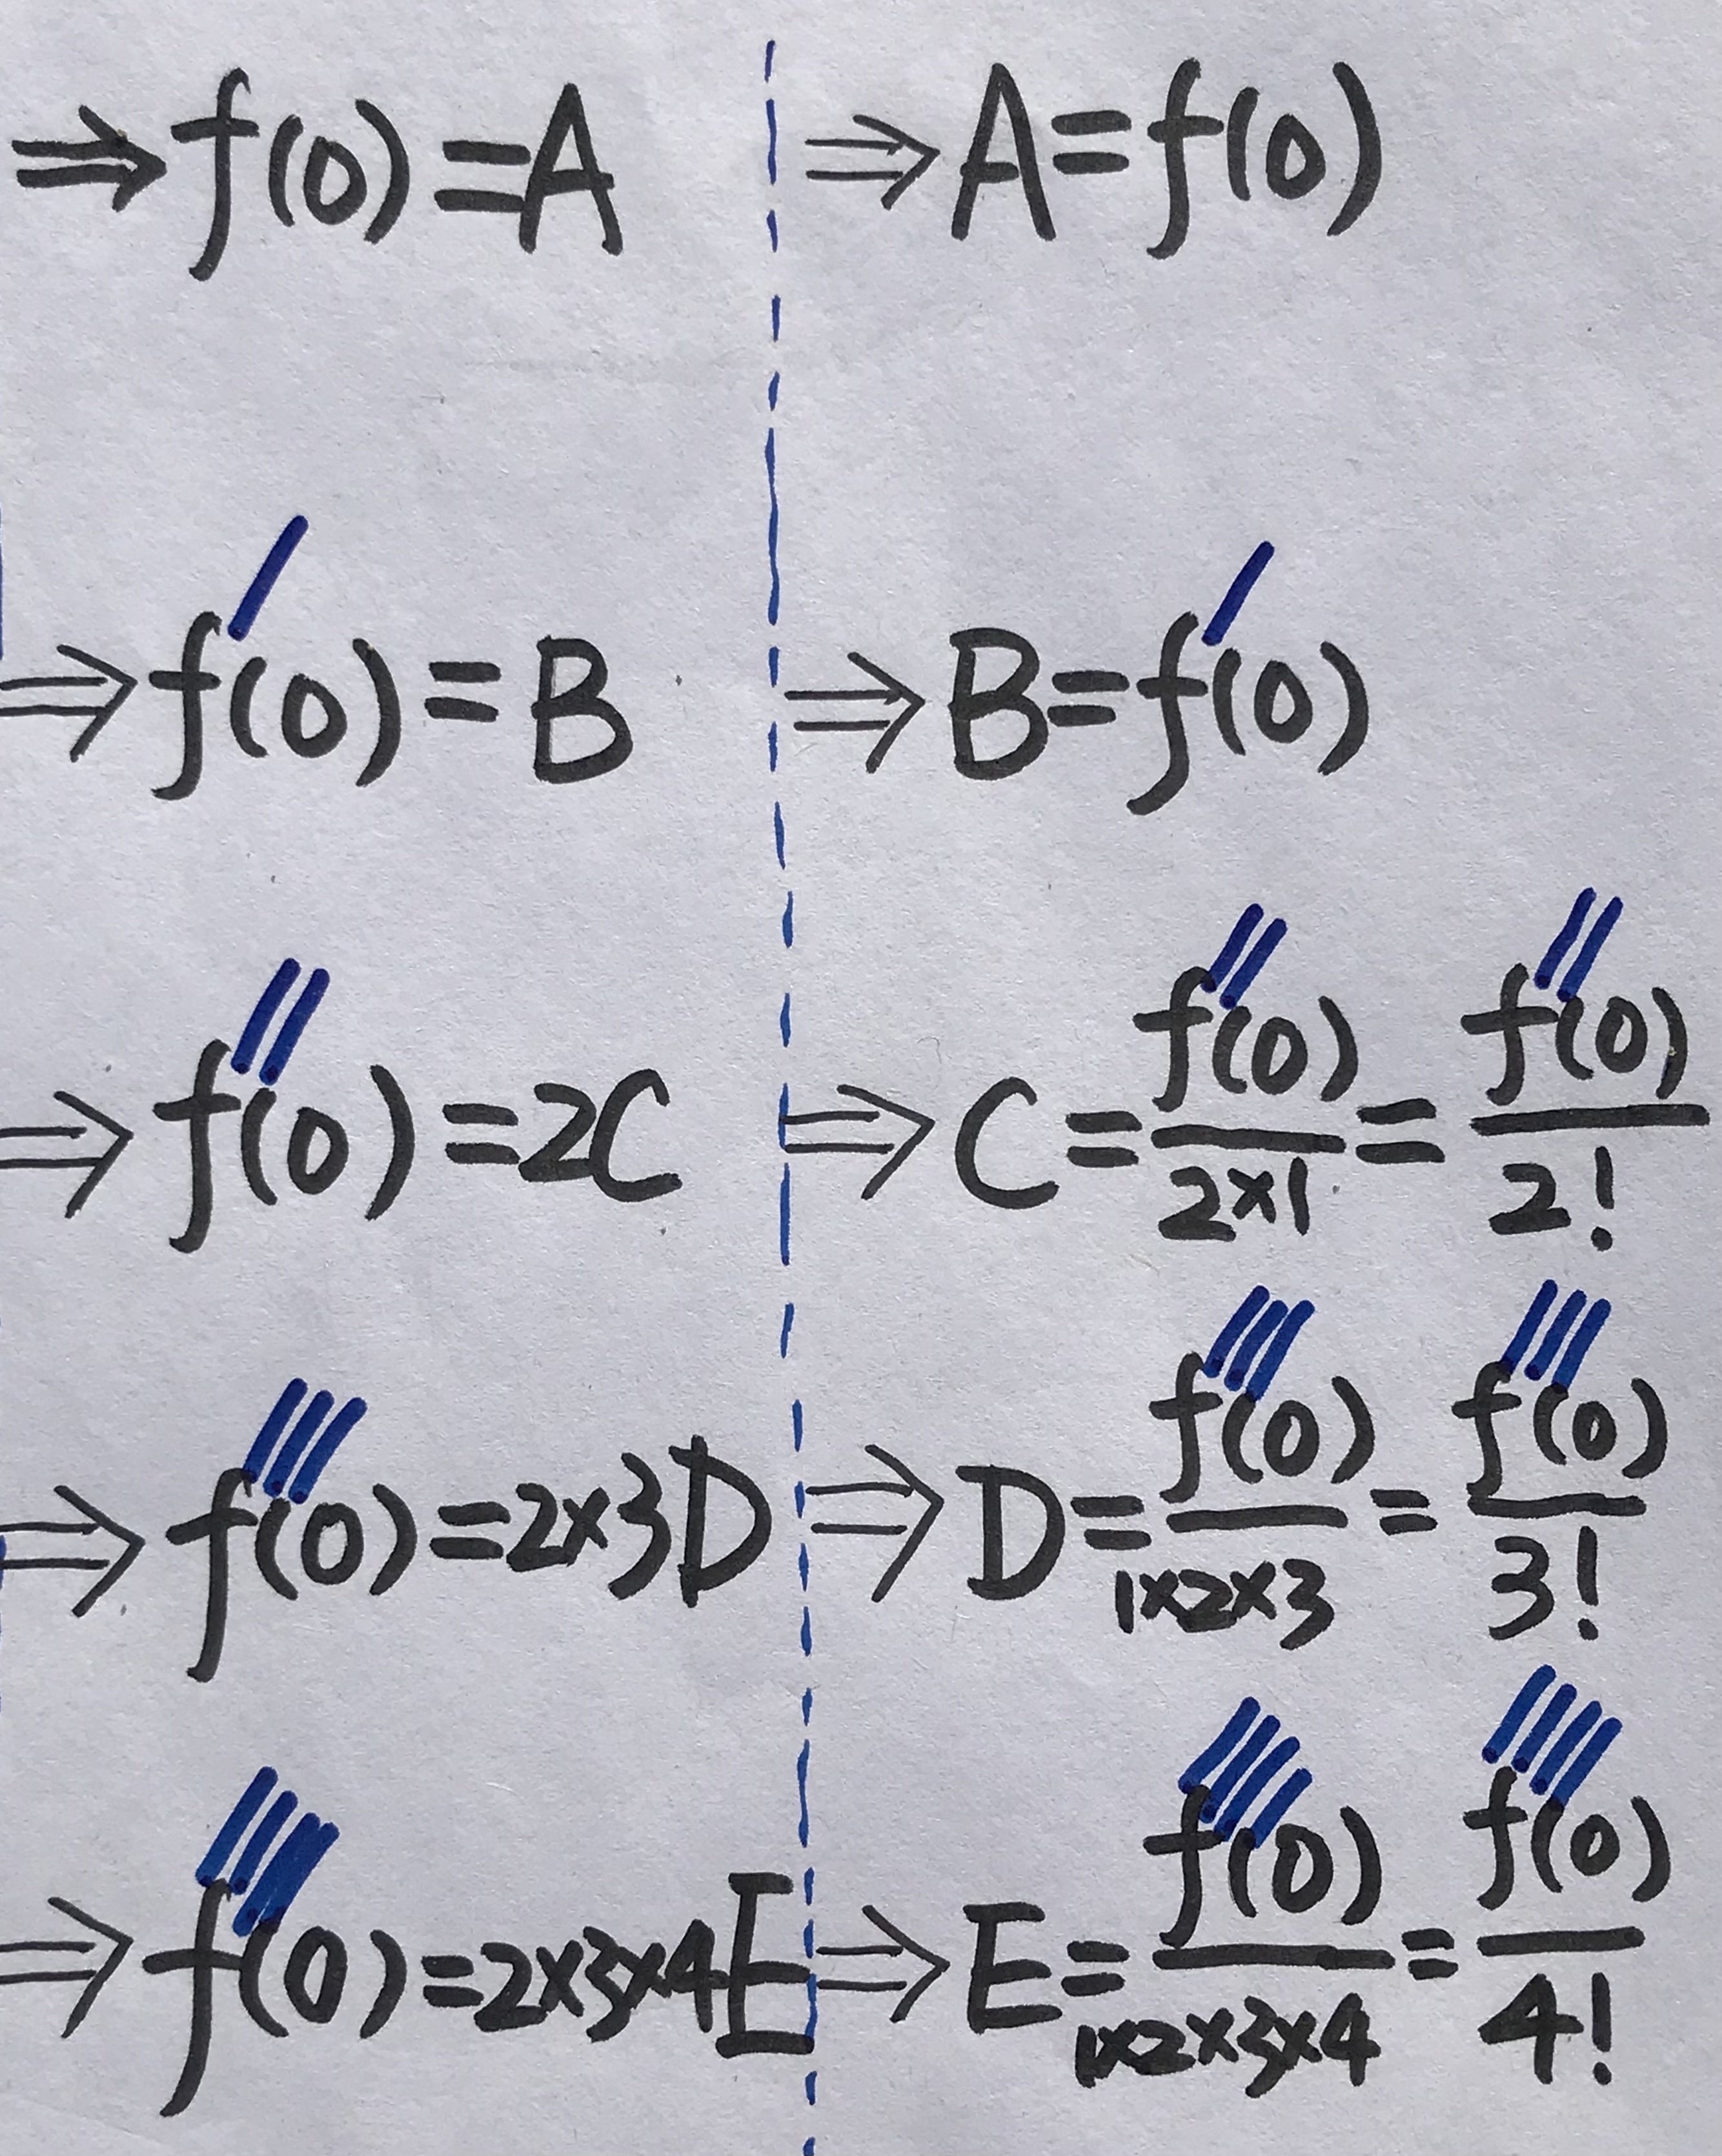 ⇒ f(0) = A ⇒ A = f(0)
⇒ f′(0) = B ⇒ B = f′(0)
⇒ f″(0) = 2C ⇒ C = f″(0)/2×1 = f″(0)/2!
⇒ f‴(0) = 2×3D ⇒ D = f‴(0)/1×2×3 = f‴(0)/3!
⇒ f⁗(0) = 2×3×4E ⇒ E = f⁗(0)/1×2×3×4 = f⁗(0)/4!